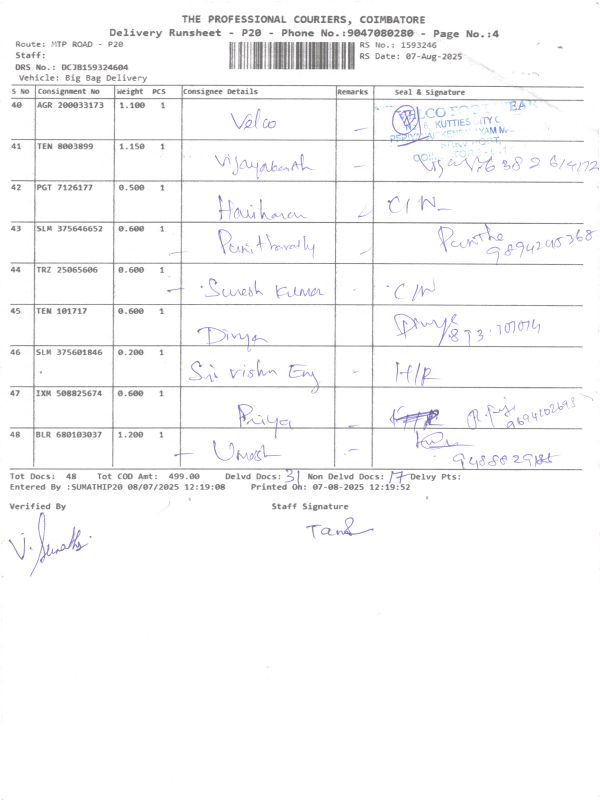 THE PROFESSIONAL COURIERS, COIMBATORE
Delivery Runsheet - P20 - Phone No.:9047080280 - Page No.:4
Route: MTP ROAD - P20 RS No.: 1593246
Staff: RS Date: 07-Aug-2025
DRS No.: DCJB159324604
Vehicle: Big Bag Delivery
S No Consignment No Weight PCS Consignee Details Remarks Seal & Signature
40 AGR 200033173 1.100 1 Velco
41 TEN 8003899 1.150 1
42 PGT 7126177 0.500 1 Hariharan C/N
43 SLM 375646652 0.600 1
44 TRZ 25065606 0.600 1 Suresh Kumar C/N
45 TEN 101717 0.600 1 Divya Divya
46 SLM 375601846 0.200 1 Sri vishnu Eng H/R
47 IXM 508825674 0.600 1 Priya
48 BLR 680103037 1.200 1 Umesh
Tot Docs: 48 Tot COD Amt: 499.00 Delvd Docs: 31 Non Delvd Docs: 17 Delvy Pts:
Entered By :SUMATHIP20 08/07/2025 12:19:08 Printed On: 07-08-2025 12:19:52
Verified By Staff Signature
V. Sumathi